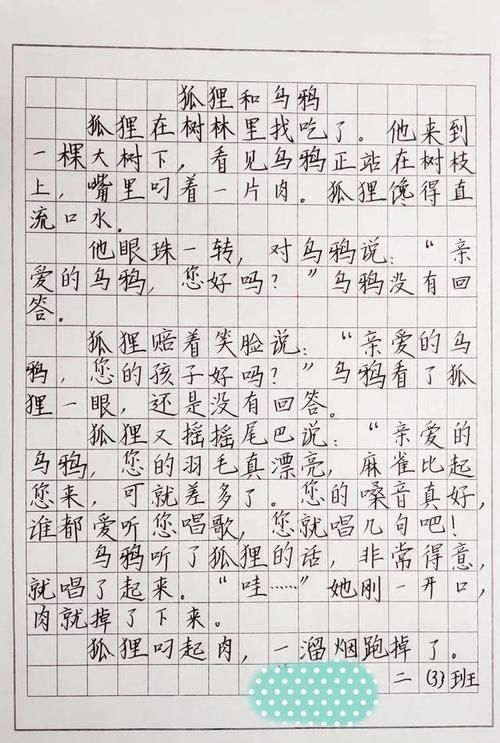 狐狸和乌鸦
狐狸在树林里找吃了。他来到
一棵大树下，看见乌鸦正站在树枝
上，嘴里叼着一片肉。狐狸馋得直
流口水。
他眼珠一转，对乌鸦说：“亲
爱的乌鸦，您好吗？”乌鸦没有回
答。
狐狸赔着笑脸说：“亲爱的乌
鸦，您的孩子好吗？”乌鸦看了狐
狸一眼，还是没有回答。
狐狸又摇摇尾巴说：“亲爱的
乌鸦，您的羽毛真漂亮，麻雀比起
您来，可就差多了。您的嗓音真好，
谁都爱听您唱歌，您就唱几句吧！
乌鸦听了狐狸的话，非常得意，
就唱了起来。“哇……”她刚一开口，
肉就掉了下来。
狐狸叼起肉，一溜烟跑掉了。
二（3）班